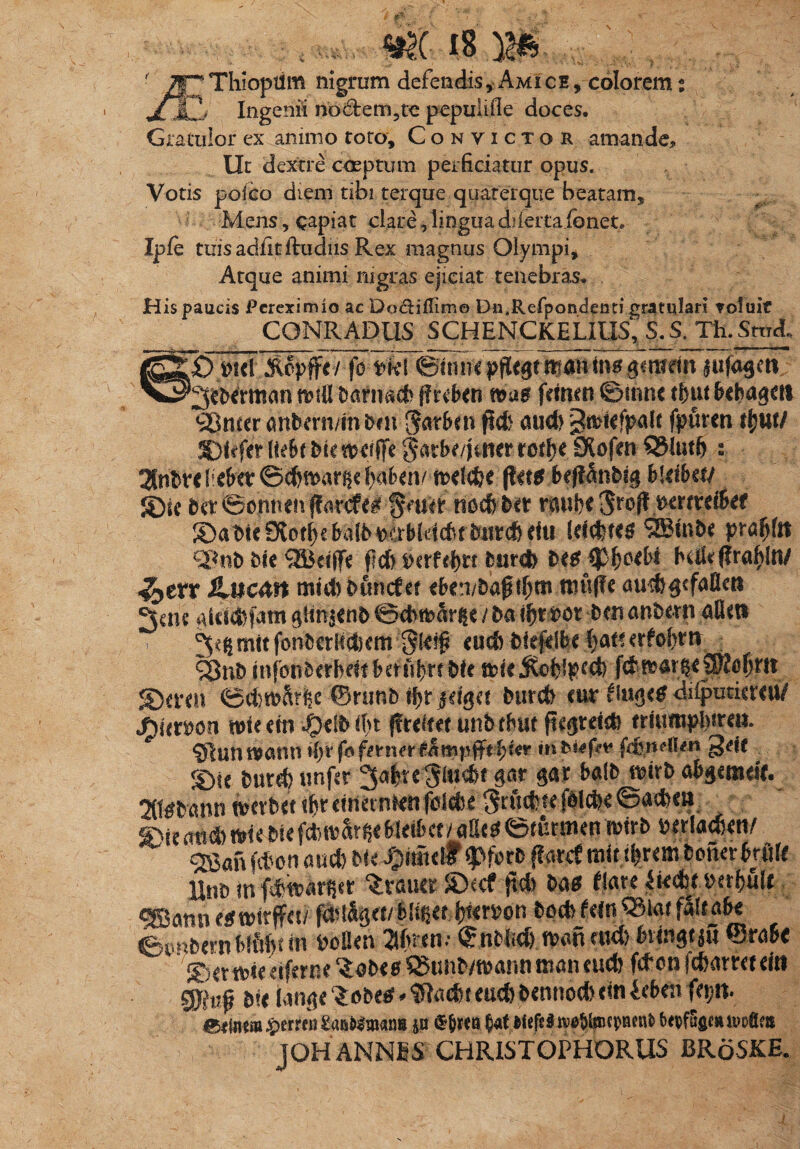 18
ÆThiopûm nigrum defendis, AMICE, colorem:
Ingenii noctem, te pepulisse doces.
Gratulor ex animo toto, CONVICTOR amande,
Ut dextrè cœptum perficiatur opus.
Votis posco diem tibi terque quaterque beatam,
Mens, capiat clarè, lingua diserta sonet.
Ipse tuis adsit studiis Rex magnus Olympi,
Atque animi nigras ejiciat tenebras.
His paucis Pereximio ac Doctissimo Dn. Respondenti gratulari voluit
CONRADUS SCHENCKELIUS, S. S. Th. Stud.
SO viel Köpffe / so viel Sinne pflegt man ins gemein zusagen
Jederman will darnach streben was seinen Sinne thut behagen
Unter andern / in den Farben sich auch Zwiespalt spüren thut /
Dieser liebt die weisse Farbe / jener rothe Rosen Bluth :
Andre lieber Schwartze haben / welche stets beständig bleibet /
Die der Sonnen starckes Feuer noch der rauhe Frost vertreibet
Da die Rothe bald verbleicht durch ein leichtes Winde prahln
Und die Weisse sich verkehrt durch des Phoebi helle strahln /
Herr Lucan mich düncket eben / daß ihm müsse auch gefallen
Jene gleichsam glintzend Schwärtze / da ihr vor den andern allen
Jetz mit sonderlichem Fleiß euch dieselbe hatt erkohrn
Und insonderheit berührt die wie Kohlpech schwartze Mohrn
Deren Schwärtze Grund ihr zeiget durch eur kluges disputieren /
Hiervon wie ein Held ihr streitet und thut siegreich triumphiren.
Nun wann ihr so ferner kämpfft hier in dieser schnellen Zeit
Die durch unser Jahre Flucht gar gar bald wird abgemeit.
Alsdann werdet ihr einernten solche Früchte solche Sachen
Die auch wie die schwärtze bleibet / alles Stürmen wird verlachen /
Wañ schon auch die Himels Pford starck mit ihrem doñer brült
Und in schwartzer Trauer Deck sich das klare Liecht verhült
Wann es wirffet / schläget / blitzet hiervon doch kein Blat fält abe
Sondern blüht in vollen Ähren: Endlich wañ euch bringt zu Grabe
Der wie eiserne Todes Bund / wann man euch schon scharret ein
Muß die lange Todes-Nacht euch dennoch ein Leben seyn.
Seinem Herren Landsmann zu Ehren hat dieses wohlmeynend beyfügen wollen
JOHANNES CHRISTOPHORUS BRÖSKE.